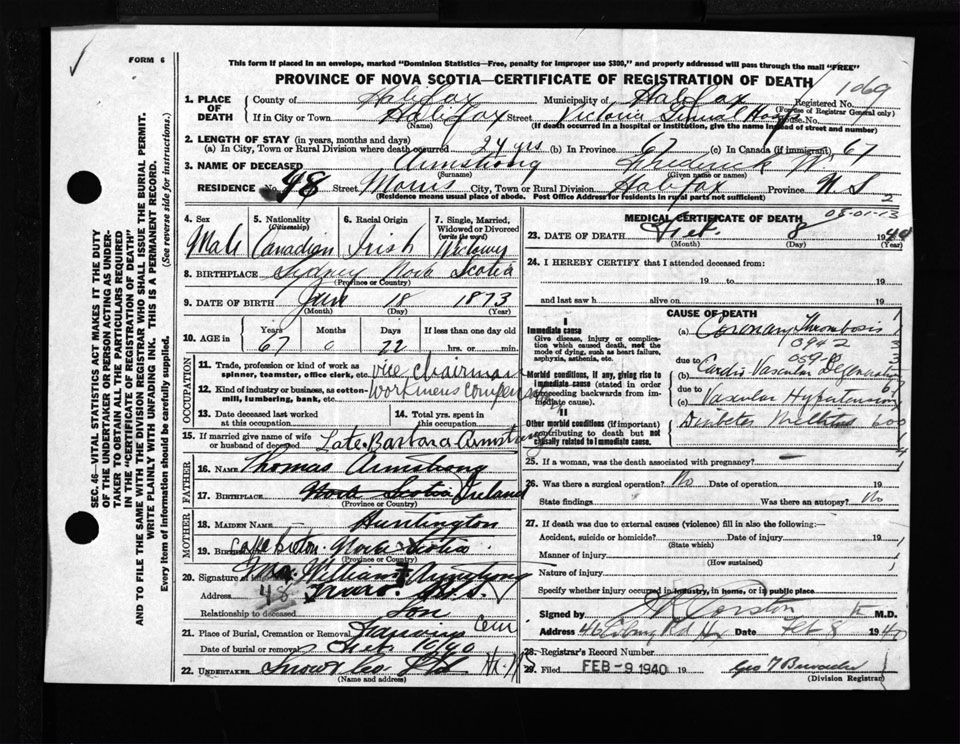 FORM 6
This form if placed in an envelope, marked "Dominion Statistics—Free, penalty for improper use $300," and properly addressed will pass through the mail "FREE"
PROVINCE OF NOVA SCOTIA—CERTIFICATE OF REGISTRATION OF DEATH
1069
1. PLACE OF DEATH
County of Halifax Municipality of Halifax Registered No.
(For use of Registrar General only)
If in City or Town Halifax Street Victoria General Hosp House No.
(Name) (If death occurred in a hospital or institution, give the name instead of street and number)
2. LENGTH OF STAY (in years, months and days)
(a) In City, Town or Rural Division where death occurred 24 yrs (b) In Province 67 (c) In Canada (if immigrant) 67
3. NAME OF DECEASED Armstrong Frederick W.
(Surname) (Given name or names)
RESIDENCE No. 48 Street Morris City, Town or Rural Division Halifax Province N S
(Residence means usual place of abode. Post Office Address for residents in rural parts not sufficient)
2
4. Sex
Male
5. Nationality (Citizenship)
Canadian
6. Racial Origin
Irish
7. Single, Married, Widowed or Divorced (write the word)
Widower
8. BIRTHPLACE Sydney Nova Scotia
(Province or Country)
9. DATE OF BIRTH Jan 18 1873
(Month) (Day) (Year)
10. AGE in
Years 67
Months 0
Days 22
If less than one day old
hrs. or min.
OCCUPATION
11. Trade, profession or kind of work as spinner, teamster, office clerk, etc. vice chairman
12. Kind of industry or business, as cotton-mill, lumbering, bank, etc. workmens compensation
13. Date deceased last worked at this occupation
14. Total yrs. spent in this occupation
15. If married give name of wife or husband of deceased Late Barbara Armstrong
FATHER
16. NAME Thomas Armstrong
17. BIRTHPLACE Nova Scotia Ireland
(Province or Country)
MOTHER
18. MAIDEN NAME Huntington
19. BIRTHPLACE Cape Breton Nova Scotia
(Province or Country)
20. Signature of informant William Armstrong
Address 48 Truro N.S.
Relationship to deceased Son
21. Place of Burial, Cremation or Removal Fairview Cem
Date of burial or removal Feb 10/40
22. UNDERTAKER Snow & Co Ltd Hx. N.S
(Name and address)
MEDICAL CERTIFICATE OF DEATH
05-01-13
23. DATE OF DEATH Feb. 8 1940
(Month) (Day) (Year)
24. I HEREBY CERTIFY that I attended deceased from:
19 to 19
and last saw h alive on 19
CAUSE OF DEATH
I
Immediate cause
Give disease, injury or complication which caused death, not the mode of dying, such as heart failure, asphyxia, asthenia, etc.
(a) Coronary Thrombosis
0942
due to
Morbid conditions, if any, giving rise to immediate cause (stated in order proceeding backwards from immediate cause).
(b) Cardio Vascular Degeneration
due to
(c) Vascular Hypertension
II
Other morbid conditions (if important) contributing to death but not causally related to immediate cause.
Diabetes Mellitus
25. If a woman, was the death associated with pregnancy?
26. Was there a surgical operation? No Date of operation 19
State findings Was there an autopsy? No
27. If death was due to external causes (violence) fill in also the following:
Accident, suicide or homicide? Date of injury 19
(State which)
Manner of injury
(How sustained)
Nature of injury
Specify whether injury occurred in industry, in home, or in public place
Signed by M.D.
Address 46 Rd Hx Date Feb 8 1940
28. Registrar's Record Number
29. Filed FEB -9 1940 19
(Division Registrar)
SEC. 46—VITAL STATISTICS ACT MAKES IT THE DUTY
OF THE UNDERTAKER OR PERSON ACTING AS UNDERTAKER TO OBTAIN ALL THE PARTICULARS REQUIRED
IN THE "CERTIFICATE OF REGISTRATION OF DEATH"
AND TO FILE THE SAME WITH THE DIVISION REGISTRAR WHO SHALL ISSUE THE BURIAL PERMIT.
WRITE PLAINLY WITH UNFADING INK. THIS IS A PERMANENT RECORD.
Every item of information should be carefully supplied. (See reverse side for instructions.)